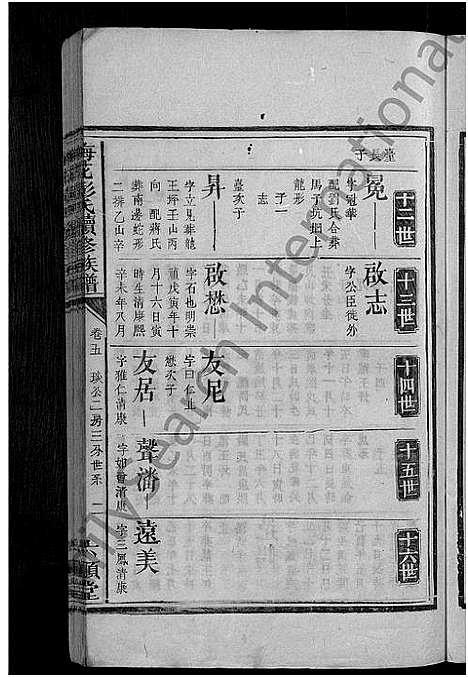 于長堂
十二世
十三世
十四世
十五世
十六世
冕
字冠華
配劉氏合葬
馬子坑堋上
龍形
子一
志
臺次子
啟志
字公臣徙外
昇
字立見葬龍
王坪壬山丙
向 配蔣氏
葬南邊蛇形
二排乙山辛
啟懋
字石也明崇
禎戊寅年十
月十六日寅
時生清康熙
辛未年八月
友尼
字曰仁止
懋次子
友居
字雅仁清康
聲潘
字如會清康
遠美
字三鳳清康
梅花彭氏續修族譜
卷五 琰公二房三分世系 二
六順堂
ily Search International